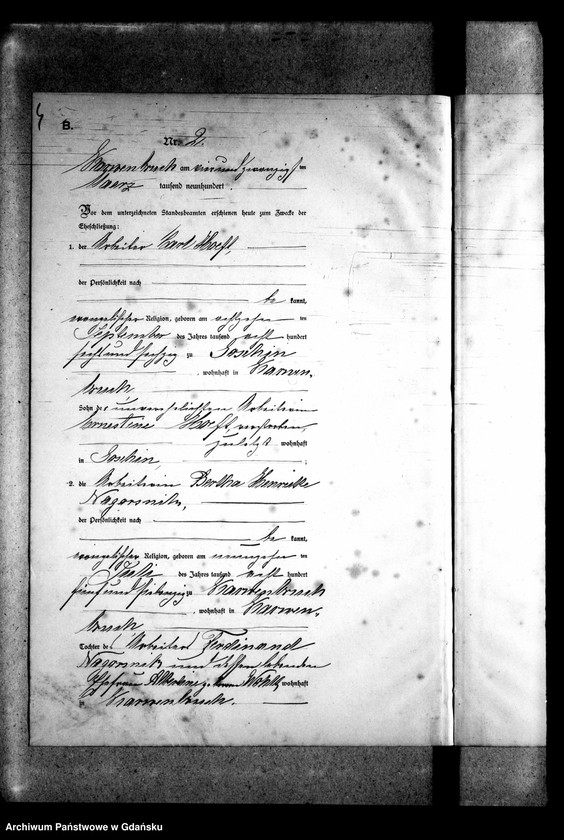 B.
Nr. 2.
Karwenbruch am vierundzwanzigsten
Maerz tausend neunhundert
Vor dem unterzeichneten Standesbeamten erschienen heute zum Zwecke der
Eheschließung:
1. der Arbeiter Carl Hoeft,
der Persönlichkeit nach
be kannt,
evangelischer Religion, geboren am achtzehn ten
September des Jahres tausend acht hundert
sechsundsechzig zu Goschin
, wohnhaft in Karwen-
bruch
Sohn der unverehelichten Arbeiterin
Ernestine Hoeft, verstorben,
zuletzt wohnhaft
in Goschin, ;
2. die Arbeiterin Bertha Henriette
Nagorsnik,
der Persönlichkeit nach
be kannt,
evangelischer Religion, geboren am neunzehn ten
des Jahres tausend acht hundert
fünfundsiebenzig zu Karwenbruch
, wohnhaft in Karwen-
bruch
Tochter des Arbeiters Ferdinand
Nagorsnik und dessen lebenden
Ehefrau geborenen wohnhaft
zu Karwenbruch.
Archiwum Państwowe w Gdańsku